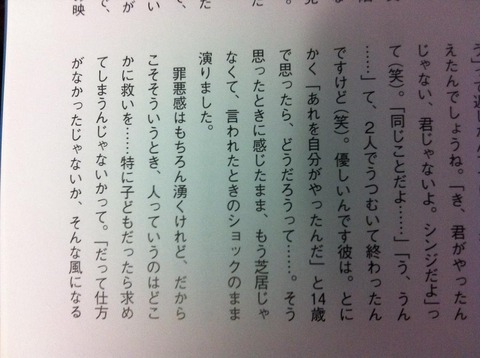 えたんでしょうね。「き、君がやったん
じゃない、君じゃないよ。シンジだよ」っ
て(笑)。「同じことだよ……」「う、うん
……」て、2人でうつむいて終わったん
ですけど(笑)。優しいんです彼は。とに
かく「あれを自分がやったんだ」と14歳
で思ったら、どうだろうって……。そう
思ったときに感じたまま、もう芝居じゃ
なくて、言われたときのショックのまま
演りました。
罪悪感はもちろん湧くけれど、だから
こそそういうとき、人っていうのはどこ
かに救いを……特に子どもだったら求め
てしまうんじゃないかって。「だって仕方
がなかったじゃないか、そんな風になる